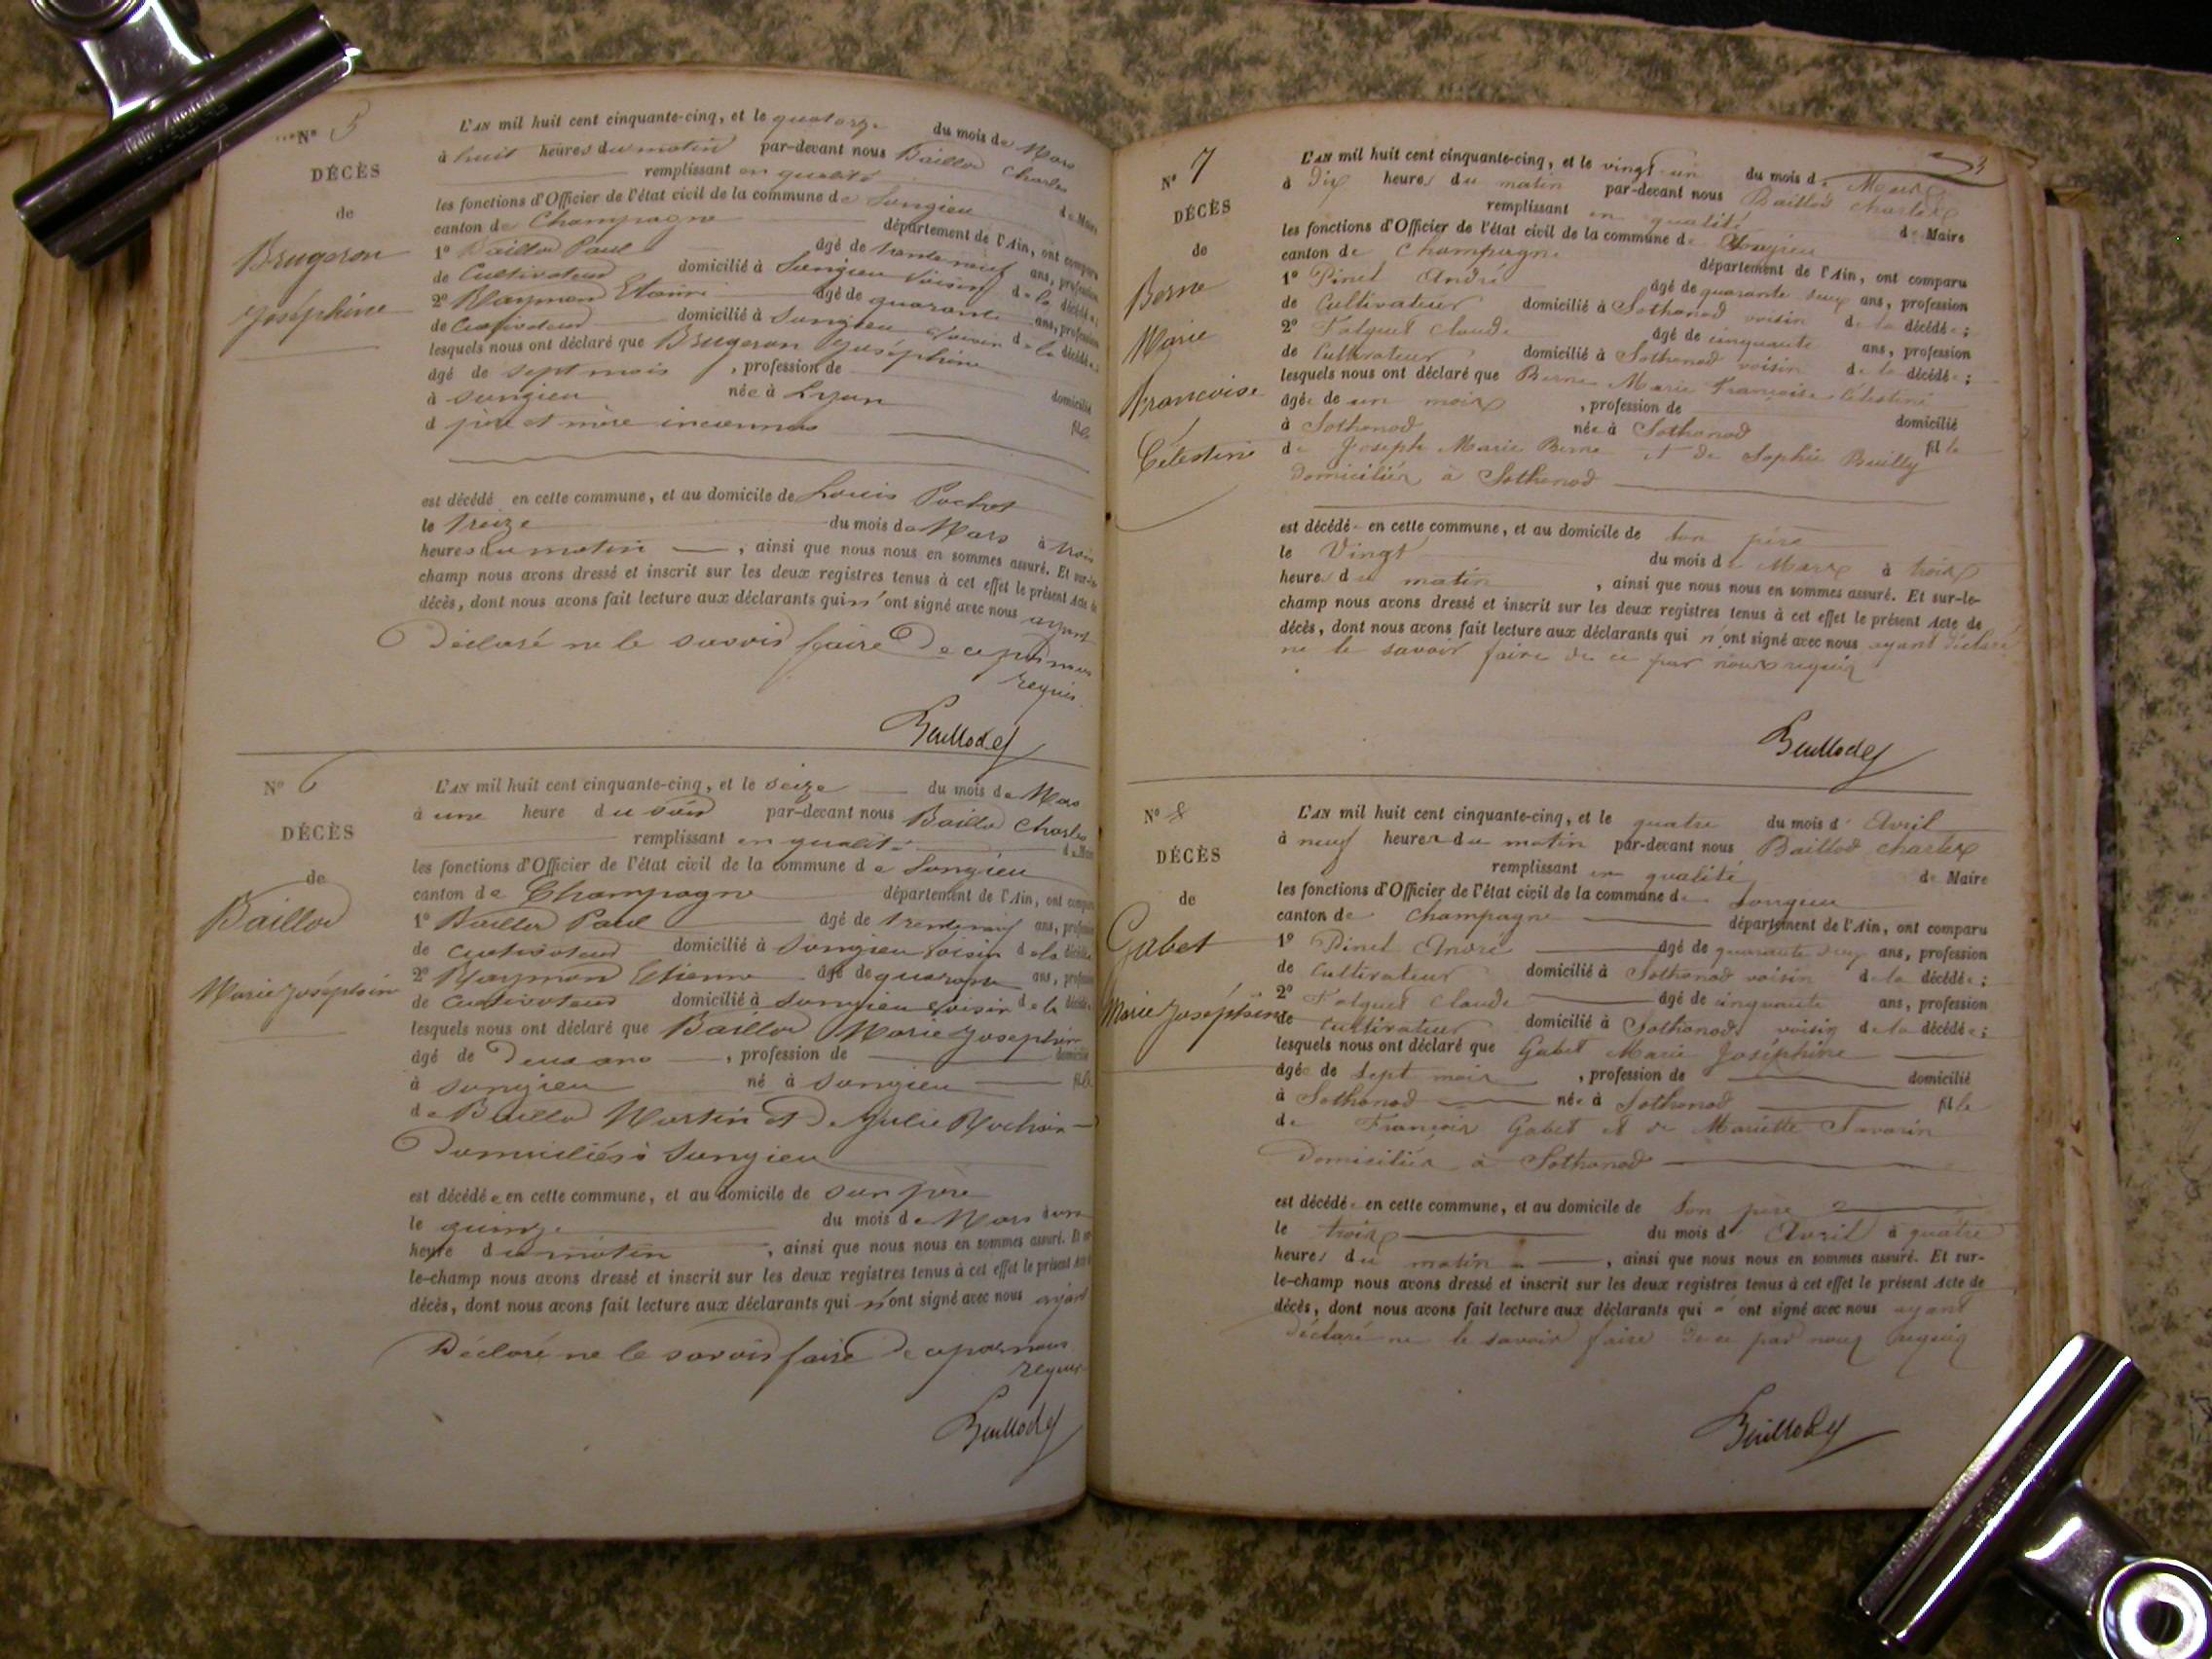 N° 5
DÉCÈS
de
Brugeron
Joséphine
L'AN mil huit cent cinquante-cinq, et le quatorze du mois de Mars
à huit heures du matin par-devant nous Baillod Charles
remplissant en qualité de Maire
les fonctions d'Officier de l'état civil de la commune de Songieu
canton de Champagne département de l'Ain, ont comparu
1° Baillod Paul âgé de trente neuf ans, profession
de Cultivateur domicilié à Songieu voisin de la décédée;
2° Etienne âgé de quarante ans, profession
de Cultivateur domicilié à Songieu voisin de la décédée
lesquels nous ont déclaré que Brugeron Joséphine
âgé de sept mois , profession de
à Songieu née à Lyon domicilié
d père et mère inconnus fille
est décédé en cette commune, et au domicile de Louis Pochet
le treize du mois de Mars à trois
heures du matin , ainsi que nous nous en sommes assuré. Et sur-le-
champ nous avons dressé et inscrit sur les deux registres tenus à cet effet le présent Acte de
décès, dont nous avons fait lecture aux déclarants qui n'ont signé avec nous ayant
Déclaré ne le savoir faire De ce par nous
requis
Baillod
N° 6
DÉCÈS
de
Baillod
Marie Joséphine
L'AN mil huit cent cinquante-cinq, et le seize du mois de Mars
à une heure du soir par-devant nous Baillod Charles
remplissant en qualité de Maire
les fonctions d'Officier de l'état civil de la commune de Songieu
canton de Champagne département de l'Ain, ont comparu
1° Baillod Paul âgé de trente neuf ans, profession
de Cultivateur domicilié à Songieu voisin de la décédée
2° Etienne âgé de quarante ans, profession
de Cultivateur domicilié à Songieu voisin de la décédée
lesquels nous ont déclaré que Baillod Marie Joséphine
âgé de Deux ans , profession de domicilié
à Songieu né à Songieu fille
de Baillod Martin et De Julie Rochain
Domiciliés à Songieu
est décédée en cette commune, et au domicile de son père
le quinze du mois de Mars à une
heure du matin , ainsi que nous nous en sommes assuré. Et sur-
le-champ nous avons dressé et inscrit sur les deux registres tenus à cet effet le présent Acte de
décès, dont nous avons fait lecture aux déclarants qui n'ont signé avec nous ayant
Déclaré ne le savoir faire De ce par nous
requis
Baillod
3
N° 7
DÉCÈS
de
Berne
Marie
Francoise
Célestine
L'AN mil huit cent cinquante-cinq, et le vingt un du mois de Mars
à Dix heures du matin par-devant nous Baillod Charles
remplissant en qualité de Maire
les fonctions d'Officier de l'état civil de la commune de Songieu
canton de Champagne département de l'Ain, ont comparu
1° Pinet André âgé de quarante deux ans, profession
de Cultivateur domicilié à Sothonod voisin de la décédée;
2° Falquet Claude âgé de cinquante ans, profession
de Cultivateur domicilié à Sothonod voisin de la décédée;
lesquels nous ont déclaré que Berne Marie Françoise Célestine
âgée de un mois , profession de domicilié
à Sothonod née à Sothonod fille
de Joseph Marie Berne et de Sophie Bailly
Domiciliés à Sothonod
est décédée en cette commune, et au domicile de son père
le Vingt du mois de Mars à trois
heures du matin , ainsi que nous nous en sommes assuré. Et sur-le-
champ nous avons dressé et inscrit sur les deux registres tenus à cet effet le présent Acte de
décès, dont nous avons fait lecture aux déclarants qui n'ont signé avec nous ayant déclaré
ne le savoir faire de ce par nous requis
Baillod
N° 8
DÉCÈS
de
Gabet
Marie Joséphine
L'AN mil huit cent cinquante-cinq, et le quatre du mois d'Avril
à neuf heures du matin par-devant nous Baillod Charles
remplissant en qualité de Maire
les fonctions d'Officier de l'état civil de la commune de Songieu
canton de Champagne département de l'Ain, ont comparu
1° Pinet André âgé de quarante deux ans, profession
de Cultivateur domicilié à Sothonod voisin de la décédée;
2° Falquet Claude âgé de cinquante ans, profession
de Cultivateur domicilié à Sothonod voisin de la décédée;
lesquels nous ont déclaré que Gabet Marie Joséphine
âgée de sept mois , profession de domicilié
à Sothonod née à Sothonod fille
de François Gabet et de Mariette Savarin
Domiciliés à Sothonod
est décédée en cette commune, et au domicile de son père
le trois du mois d'Avril à quatre
heures du matin , ainsi que nous nous en sommes assuré. Et sur-
le-champ nous avons dressé et inscrit sur les deux registres tenus à cet effet le présent Acte de
décès, dont nous avons fait lecture aux déclarants qui n'ont signé avec nous ayant
déclaré ne le savoir faire de ce par nous requis
Baillod